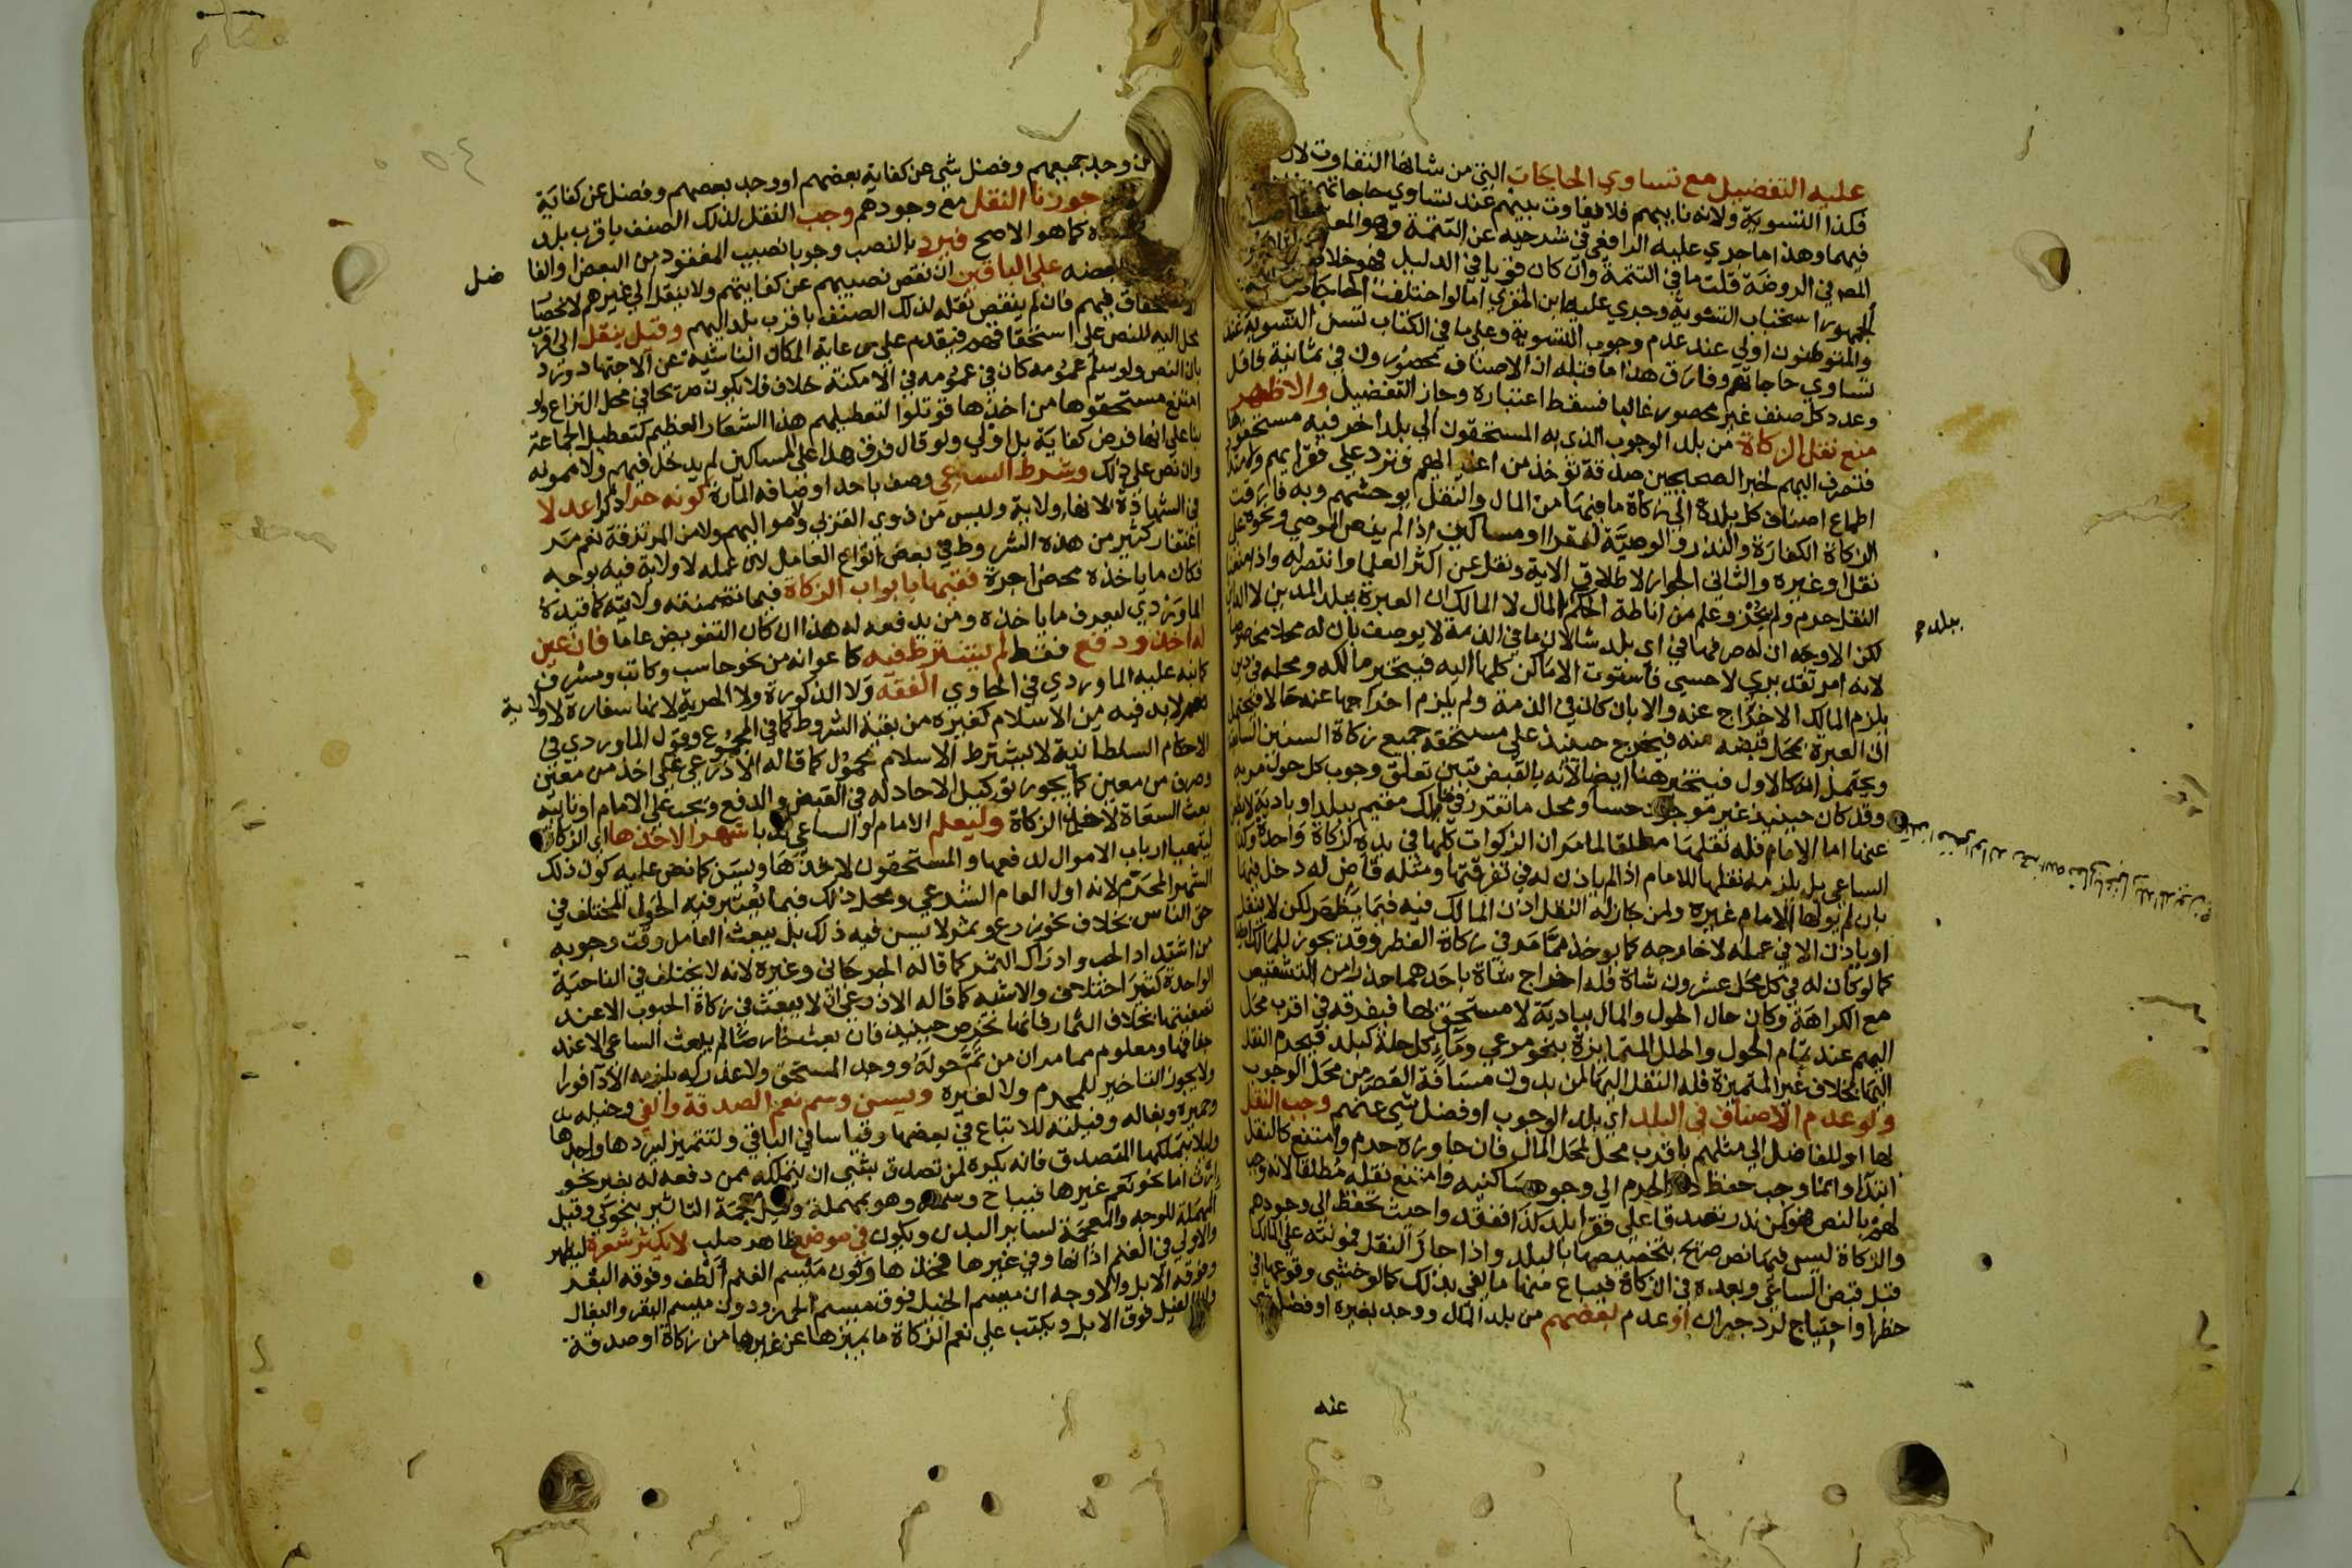 عليه التفضيل مع تساوي الحاجات التي من شانها التفاوت لان
فكذا التسوية ولانه نايبهم فلا يفاوت بينهم عند تساوي حاجاتهم
فيهما وهذا ما جري عليه الرافعي في شرحيه عن التتمة وهو المعـ
المص في الروضة قلت ما في التتمة وان كان قويا في الدليل فهو خلاف
الجمهور استحباب التسوية وجري عليه ابن المقري اما لو اختلفت الحاجات
والمتوطنون اولي عند عدم وجوب التسوية وعلي ما في الكتاب تسن التسوية عند
تساوي حاجاتهم وفارق هذا ما قبله ان الاصناف محصورون في ثمانية فاقل
وعدد كل صنف غير محصور غالبا فسقط اعتباره وجاز التفضيل والاظهر
منع نقل الزكاة من بلد الوجوب الذي به المستحقون الي بلد اخر فيه مستحقوها
فتصرف اليهم لخبر الصحيحين صدقة تؤخذ من اغنيائهم فترد علي فقرايهم ولامتداد
اطماع اصناف كل بلدة الي زكاة ما فيها من المال والنقل يوحشهم وبه فارقت
الزكاة الكفارة والنذر والوصية لفقرا او مساكين اذا لم ينص الموصي ونحوه علي
نقل او غيره والثاني الجواز لاطلاق الاية ونقل عن اكثر العلما وانتصر له واذا امتنع
النقل حرم ولم يجز وعلم من اناطة الحكم بالمال لا المالك ان العبرة ببلد المدين لا الداين
لكن الاوجه ان له صرفها في اي بلد شا لان ما في الذمة لا يوصف بان له محلا مخصوصا
لانه امر تقديري لا حسي فاستوت الاماكن كلها اليه فيتخير مالكه ومحله في دين
يلزم المالك الاخراج عنه والا بان كان في الذمة ولم يلزم اخراجها عنه حالا فيحتمل
ان العبرة بمحل قبضه منه فيخرج حينئذ علي مستحقه جميع زكاة السنين السابقة
ويحتمل انه كالاول فيتخير هنا ايضا لانه بالقبض تبين تعلق وجوب كل حول مر به
وقد كان حينئذ غير موجود حسا ومحل ما تقرر في مالك مقيم ببلد او بادية لا يظعن
عنها اما الامام فله نقلها مطلقا لما مر ان الزكوات كلها في يده كزكاة واحدة وكذا
الساعي بل يلزمه نقلها للامام اذا لم ياذن له في تفرقتها ومثله قاض له دخل فيها
بان لم يولها الامام غيره ولمن جاز له النقل اذن المالك فيه فيما يظهر لكن لا ينقل
او ياذن الا في عمله لا خارجه كما يوخذ مما مر في زكاة الفطر وقد يجوز للمالك ايضا
كما لو كان له في كل محل عشرون شاة فله اخراج شاة باحدهما حذرا من التشقيص
مع الكراهة وكان حال الحول والمال ببادية لا مستحق بها فيفرقه في اقرب محل
اليهم عند تمام الحول والحلل المتمايزة بنحو مرعي وماء كل حلة كبلد فيحرم النقل
اليها بخلاف غير المتميزة فله النقل اليها لمن بدون مسافة القصر من محل الوجوب
ولو عدم الاصناف في البلد اي بلد الوجوب او فضل شي عنهم وجب النقل
لها او للفاضل الي مثلهم باقرب محل لمحل المال فان جاوزه حرم وامتنع كالنقل
ابتداء وانما وجب حفظ دم الحرم الي وجود مساكنيه وامتنع نقله مطلقا لانه وجب
لهم بالنص فهو كمن نذر تصدقا علي فقرا بلد كذا ففقد واحيث تحفظ الي وجودهم
والزكاة ليس فيها نص صريح بتخصيصها بالبلد واذا جاز النقل فمونته علي المالك
قبل قبض الساعي وبعده في الزكاة فيباع منها ما يفي بذلك كما لو خشي وقوعها في
خطر او احتياج لرد جبران او عدم بعضهم من بلد المال ووجد بغيره او فضل شي
عنه
بلد
من وجد جميعهم وفضل شي عن كفاية بعضهم او وجد بعضهم وفضل عن كفاية
جوزنا النقل مع وجودهم وجب النقل لذلك الصنف باقرب بلد
كما هو الاصح فيرد بالنصب وجوبا نصيب المفقود من البعض او الفا
ضل
بعضه علي الباقين ان نقص نصيبهم عن كفايتهم ولا ينقل الي غيرهم لانحصار
الاستحقاق فيهم فان لم ينقص نقله لذلك الصنف باقرب بلد اليهم وقيل ينقل الي اقرب
محل اليه للنص علي استحقاقهم فيقدم علي رعاية المكان الناشية عن الاجتهاد ورد
بان النص ولو سلم عمومه كان في عمومه في الامكنة خلاف فلا يكون صريحا في محل النزاع ولو
امتنع مستحقوها من اخذها قوتلوا لتعطيلهم هذا الشعار العظيم كتعطيل الجماعة
بنا علي انها فرض كفاية بل اولي ولو قال فرق هذا علي المساكين لم يدخل فيهم ولا ممونه
وان نص علي ذلك وشرط الساعي وصف باحد اوصافه المارة كونه حرا ذكرا عدلا
في الشهادة لانها ولاية وليس من ذوي القربي ولا مواليهم ولا من المرتزقة نعم مر
اغتفار كثير من هذه الشروط في بعض انواع العامل لان عمله لا ولاية فيه بوجه
فكان ما ياخذه محض اجرة فقيها بابواب الزكاة فيما تضمنته ولايته كما قيده
الماوردي ليعرف ما ياخذه ومن يدفعه له هذا ان كان التفويض عاما فان عين
له اخذ ودفع فقط لم يشترط فيه كاعوانه من نحو حاسب وكاتب ومشرف
كما نبه عليه الماوردي في الحاوي الفقه ولا الذكورة ولا الحرية لانها سفارة لا ولاية
نعم لا بد فيه من الاسلام كغيره من بقية الشروط كما في المجموع وقول الماوردي في
الاحكام السلطانية لا يشترط الاسلام محمول كما قاله الاذرعي علي اخذ من معين
وصرف من معين كما يجوز توكيل الاحاد له في القبض والدفع ويجب علي الامام او نايبه
بعث السعاة لاخذ الزكاة وليعلم الامام او الساعي ندبا شهرا لاخذها اي الزكاة
ليتهيا ارباب الاموال لدفعها والمستحقون لاخذها ويسن كما نص عليه كون ذلك
الشهر المحرم لانه اول العام الشرعي ومحل ذلك فيما يعتبر فيه الحول المختلف في
حق الناس بخلاف نحو زرع وثمر لا يسن فيه ذلك بل يبعث العامل وقت وجوبه
من اشتداد الحب وادراك الثمر كما قاله الجرجاني وغيره لانه لا يختلف في الناحية
الواحدة كثير اختلاف والاشبه كما قاله الاذرعي ان لا يبعث في زكاة الحبوب الا عند
تصفيتها بخلاف الثمار فانها تخرص حينئذ فان بعث خارصا لم يبعث الساعي الا عند
جفافها ومعلوم مما مر ان من تم حوله ووجد المستحق ولا عذر له يلزمه الاداء فورا
ولا يجوز التاخير للمحرم ولا لغيره ويسن وسم نعم الصدقة والفي وخيله
وحميره وبغاله وفيلته للاتباع في بعضها وقياسا في الباقي ولتتميز ليردها واجدها
وليلا يتملكها المتصدق فانه يكره لمن تصدق بشي ان يتملكه ممن دفعه له بغير نحو
ارث اما نحو نعم غيرها فيباح وسمه وهو بمهملة وقيل بمعجمة التاثير بنحو كي وقيل
المهملة للوجه والمعجمة لساير البدن ويكون في موضع ظاهر صلب لا يكثر شعره ليظهر
والاولي في الغنم اذانها وفي غيرها فخذها وكون ميسم الغنم الطف وفوقه البقر
وفوقه الابل والاوجه ان ميسم الخيل فوق ميسم الحمر ودون ميسم البقر والبغال
وان الفيل فوق الابل ويكتب علي نعم الزكاة ما يميزها عن غيرها من زكاة او صدقة